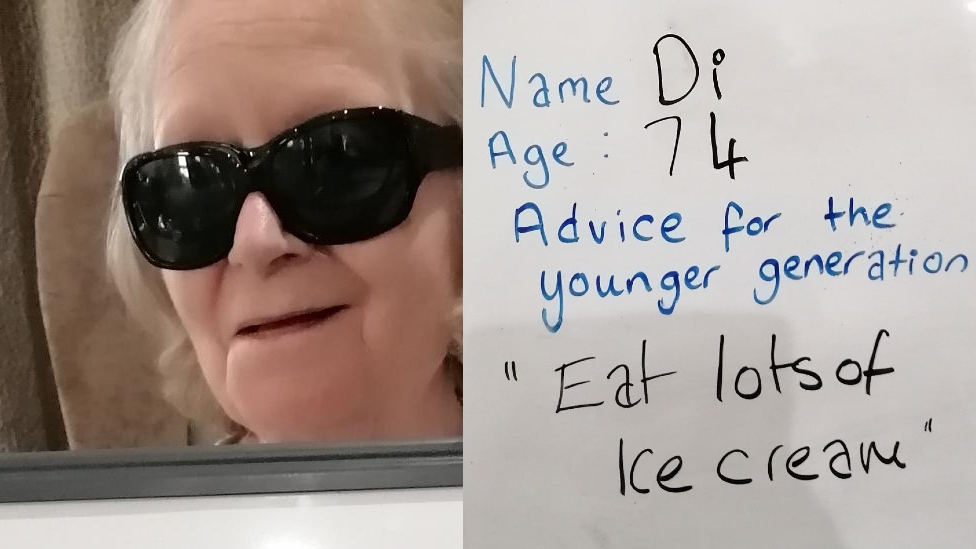 Name Di
Age: 74
Advice for the
younger generation
"Eat lots of
Ice cream"